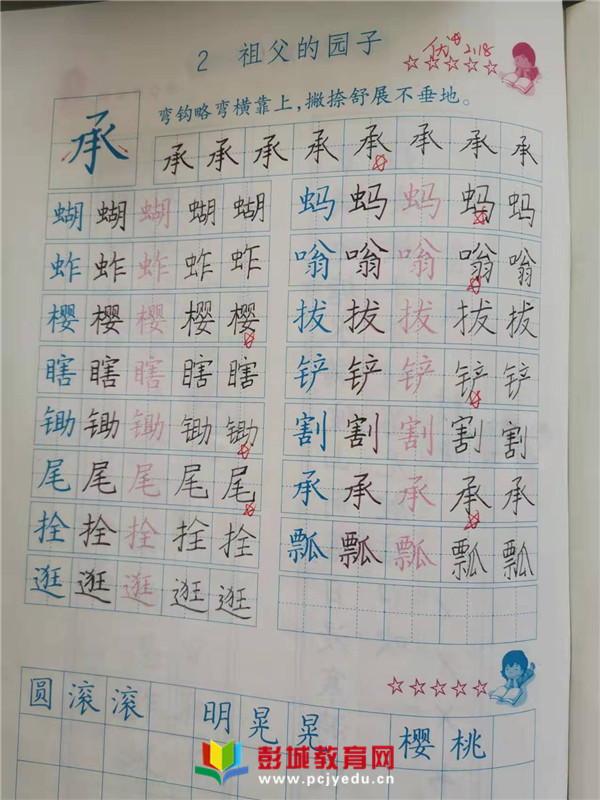 2 祖父的园子
优 2.18
弯钩略弯横靠上，撇捺舒展不垂地。
承 承 承 承 承 承 承 承 承
蝴 蝴 蝴 蝴 蝴 蚂 蚂 蚂 蚂 蚂
蚱 蚱 蚱 蚱 蚱 嗡 嗡 嗡 嗡 嗡
樱 樱 樱 樱 樱 拔 拔 拔 拔 拔
瞎 瞎 瞎 瞎 瞎 铲 铲 铲 铲 铲
锄 锄 锄 锄 锄 割 割 割 割 割
尾 尾 尾 尾 尾 承 承 承 承 承
拴 拴 拴 拴 拴 瓢 瓢 瓢 瓢 瓢
逛 逛 逛 逛 逛
圆 滚 滚 明 晃 晃 樱 桃
彭城教育网
www.pcjyedu.cn